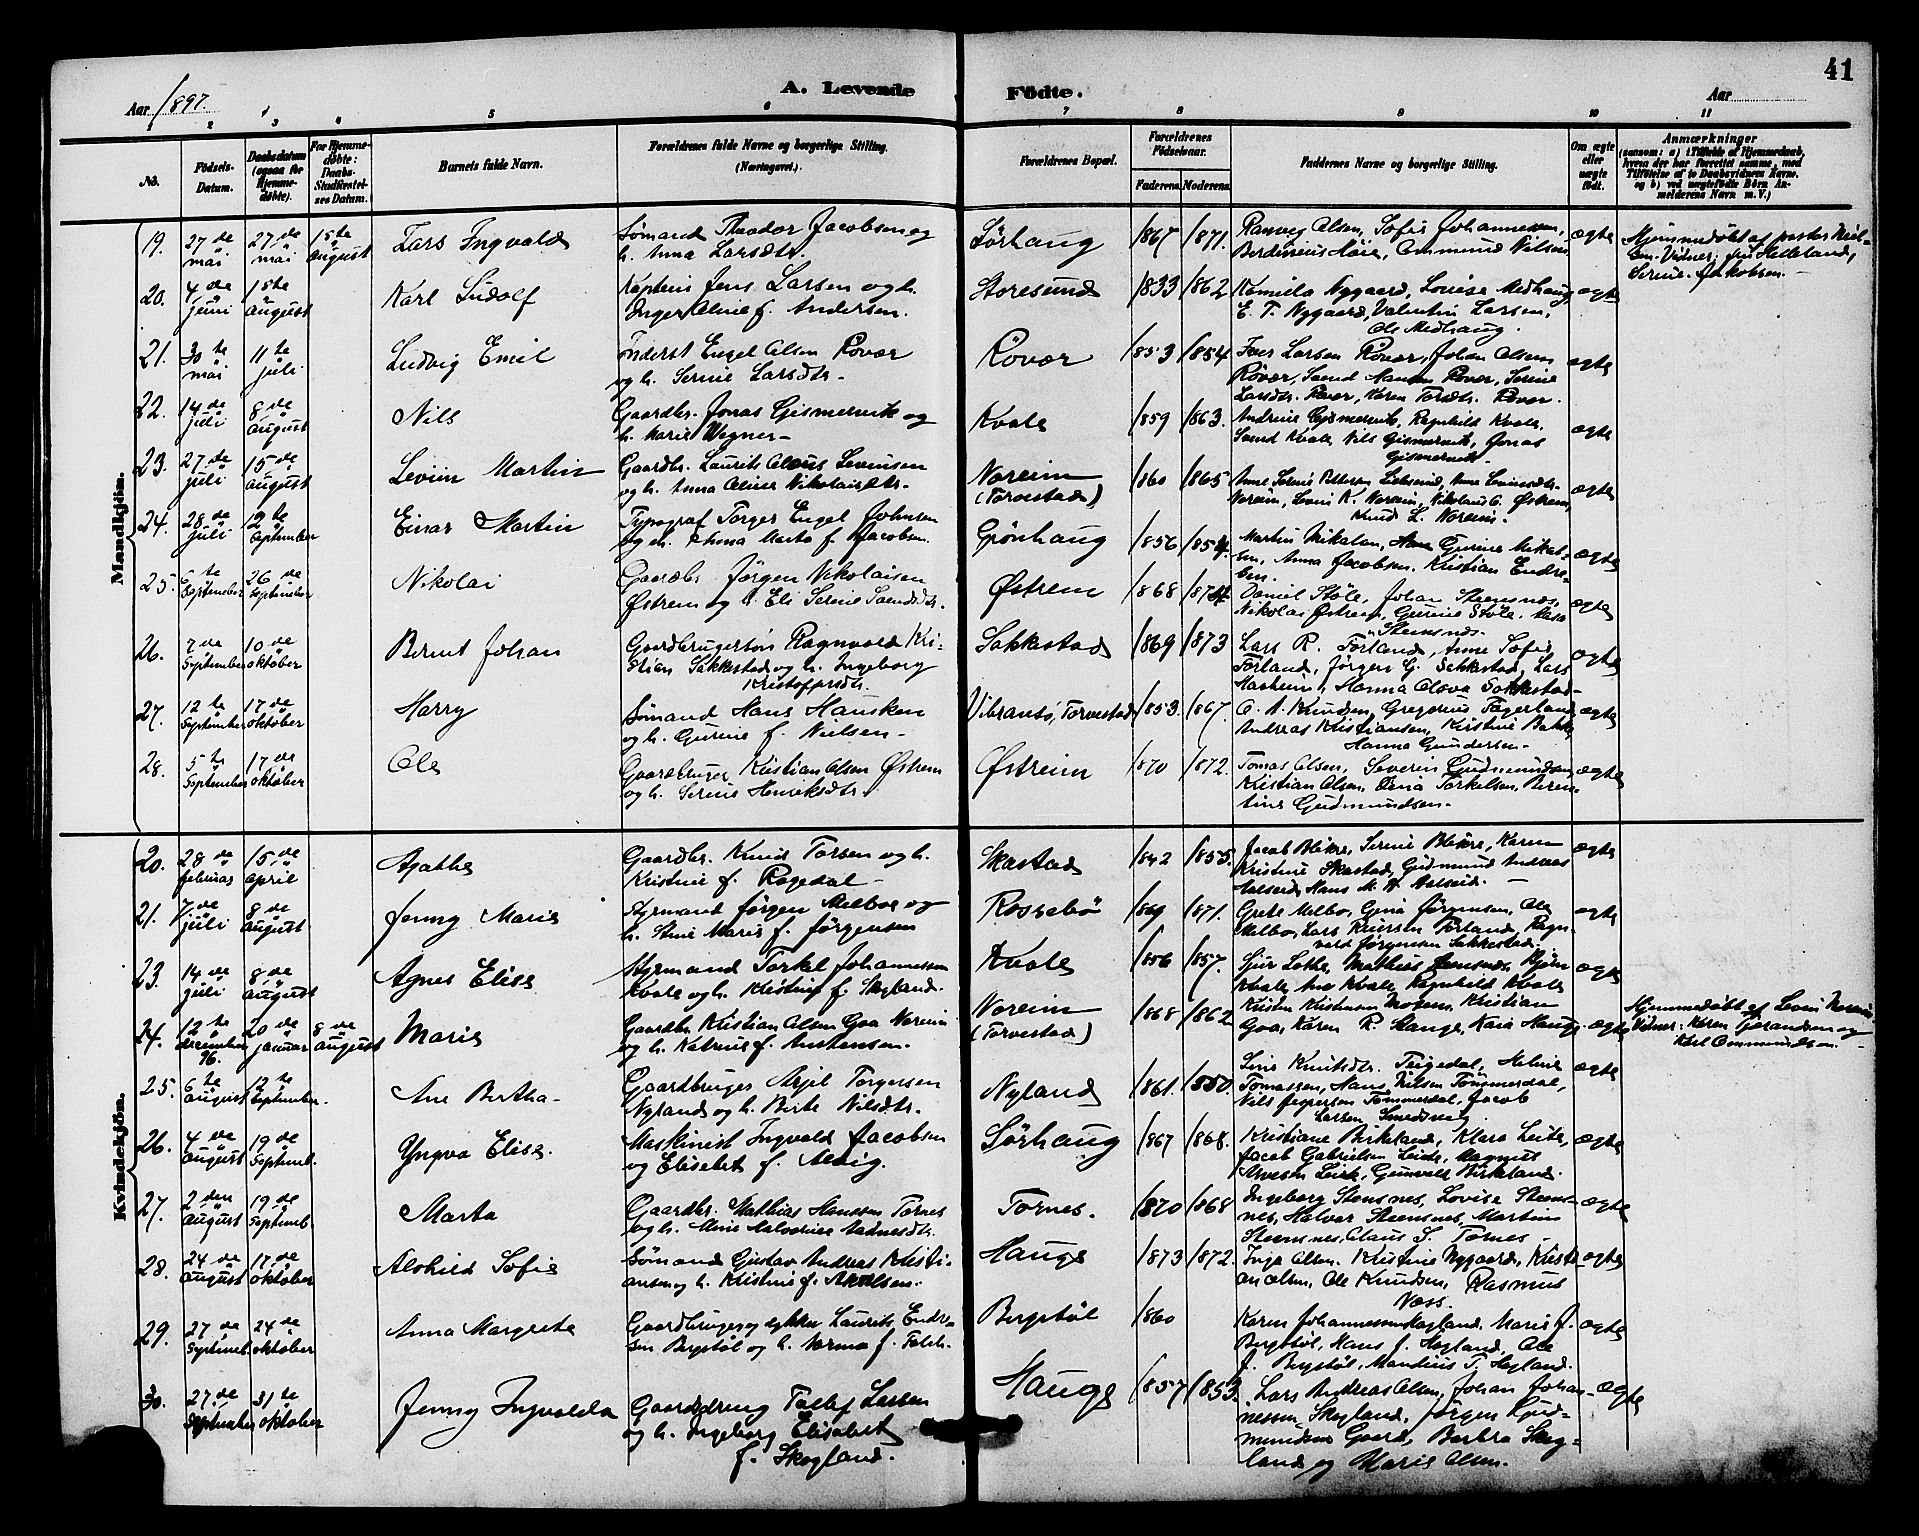 41
A. Levende Födte.
Aar 1897.
Aar
1 2 3 4 5 6 7 8 9 10 11
No.
Födsels-Datum.
Daabsdatum (ogsaa for Hjemmedöbte).
For Hjemmedöbte: Daabs-Stadfæstelses Datum.
Barnets fulde Navn.
Forældrenes fulde Navne og borgerlige Stilling. (Næringsvei.)
Forældrenes Bopæl.
Forældrenes Födselsaar.
Faderens.
Moderens.
Faddernes Navne og borgerlige Stilling.
Om ægte eller uægte födt.
Anmærkninger
(saasom: a) i Tilfælde af Hjemmedaab, hvem der har forrettet samme, med Tilföielse af to Daabsvidners Navne, og b) ved uægtefödte Börn Anmelderens Navn m. V.)
Mandkjön.
19. 27de mai 27de mai 15te august Lars Ingvald Sømand Theodor Jacobsen og h. Anna Larsdtr. Sørhaug 1867 1871. Ranveg Olsen, Sofie Johannessen, Berdinius Høie, Ommund Nilsen ægte Hjemmedøbt af pastor Vidner: fru Helleland, Serine Jakobsen.
20. 4de juni 15te august Karl Ludolf Kaptein Jens Larsen og h. Inger Oline f. Andersen. Storesund 1833 1862 Kamilla Nygaard, Lovise Medhaug E. T. Nygaard, Valentin Larsen, Ole Medhaug. ægte
21. 30te mai 11te juli Ludvig Emil Engel Olsen Røvær og h. Serine Larsdtr. Røvær 1853 1854 Iver Larsen Røvær, Johan Olsen Røvær, Hansen Røvær, Serine Larsdtr. Røvær, Karen Røvær. ægte
22. 14de juli 8de august Nils Gaardbr. Jonas Gismervik og h. Marie Wegner Kvale 1859 1863. Andrine Gismervik, Ragnhild Kvale, Kvale, Nils Gismervik, Jonas Gismervik. ægte
23. 27de juli 15de august Leviin Martin Gaardbr. Laurits Olaus Levinsen og h. Anna Oline Nikolaisdtr. Noreim (Torvestad) 1860 1865 Anne Serine Pettersen Noreim, K. Noreim, Nikolaus O. Østrem, Knud L. Noreim. ægte
24. 28de juli 12te september Einar Martin Typograf Torger Engel Johnsen og h. Anna Marta f. Jacobsen. Grønhaug 1856 1854. Martin Mikalsen, Gurine Mikalsen, Anna Jacobsen, Kristian Endresen. ægte
25. 6te september 26de september Nikolai Gaardbr. Jörgen Nikolaisen Østrem og h. Eli Serine Østrem 1868 1874 Daniel Støle, Johan Steensnes, Nikolai Østrem, Gurine Støle, Steensnes. ægte
26. 7de september 10de oktober Bernt Johan Gaardbrugersøn Ragnvald Kristian Sakkestad og h. Ingeborg Kristofersdtr. Sakkestad 1869 1873 Lars R. Førland, Anne Sofie Førland, Jørgen G. Sakkestad, Lars Hanna Olava Sakkestad ægte
27. 12te september 17de oktober Harry Sømand Hans Hansken og h. Gurine f. Nielsen Vibrantø, Torvestad 1853. 1867. O. A. Knudsen, Gregorius Fagerland, Andreas Kristiansen, Kristine Bakke, Hanna Gundersen. ægte
28. 5te september 17de oktober Ole Gaardbruger Kristian Olsen Østrem og h. Serine Henriksdtr. Østreim 1870 1872. Tomas Olsen, Severin Gudmundsen, Kristian Olsen, Torkelsen, Berentine Gudmundsen. ægte
Kvindekjön.
20. 28de februar 15de april Agathe Gaardbr. Knud Torsen og h. Kristine f. Ragedal Skastad 1842 1855. Jacob Blikre, Serine Blikre, Karen Kristine Skastad, Gudmund Andreas Aalseid, Hans M. A. Aalseid. ægte
21. 7de juli 8de august Jenny Marie Styrmand Jörgen Melboe og h. Stine Marie f. Jörgensen Rossebø 1869 1871. Grete Melbo, Gina Jørgensen, Ole Melbo, Lars Førland, Ragnvald Jørgensen Sakkestad. ægte
23. 14de juli 8de august Agnes Elise Styrmand Torkel Johannessen Kvale og h. Kristine f. Skogland. Kvale 1856 1857. Sjur Lothe, Mathias Kvale, Kvale, Ragnhild Kvale ægte
24. 12te december 96. 20de januar 8de august Marie Gaardbr. Kristian Olsen Goa Noreim og h. Katrine f. Austensen. Noreim (Torvestad) 1868 1862 Kristen Kristiansen Kristian Goa, Karen R. Stange, Kaia Hauge. ægte Hjemmedøbt af Leviin Noreim Vidner: Karen og Karl Ommundsen
25. 6te august 12te september Ane Bertha Gaardbruger Asjel Torgersen Nyland og h. Birte Nilsdtr. Nyland 1861. 1850. Sine Knutsdtr. Teigedal, Helene Tomassen, Hans Nilsen Tömmerdal, Nils Jespersen Tömmerdal, Jacob Larsen, ægte
26. 4de august 19de septemb. Yngva Elise Maskinist Ingvald Jacobsen og Elisabet f. Sørhaug 1867 1868. Kristiane Birkeland, Klara Leite, Jacob Gabrielsen Magnus Gunvald Birkland. ægte
27. 2den august 19de septemb. Marta Gaardbr. Mathias Hanssen Tornes og h. Tornes. 1870 1868 Ingeborg Stensnes, Lovise Steensnes, Halvar Steensnes, Martin Steensnes, Claus S. Tornes ægte
28. 24de august 17de oktober Alvhild Sofie Sømand Gustav Andreas Kristiansen og h. Kristine f. Hauge 1873 1872. Inga Olsen, Kristine Nygaard, Kristian Olsen, Ole Knudsen, Rasmus Næss. ægte
29. 27de septemb. 24de oktober Anna Margrete Gaardbruger og Laurits Endresen Bergstøl og h. Norma f. Bergstøl 1860 Karen Johannessen Skogland, Marie J. Bergstøl, Hans J. Hogland, Ole J. Bergstøl, Mandius T. Hogland. ægte
30. 27de september 31te oktober Jenny Ingvalda Larsen og h. Ingeborg Elisabet f. Skogland. Hauge 1857 1853. Lars Andreas Olsen, Johan Johannessen Skogland, Jørgen Gudmundsen Gaard, Barbra Skogland og Marie Olsen. ægte